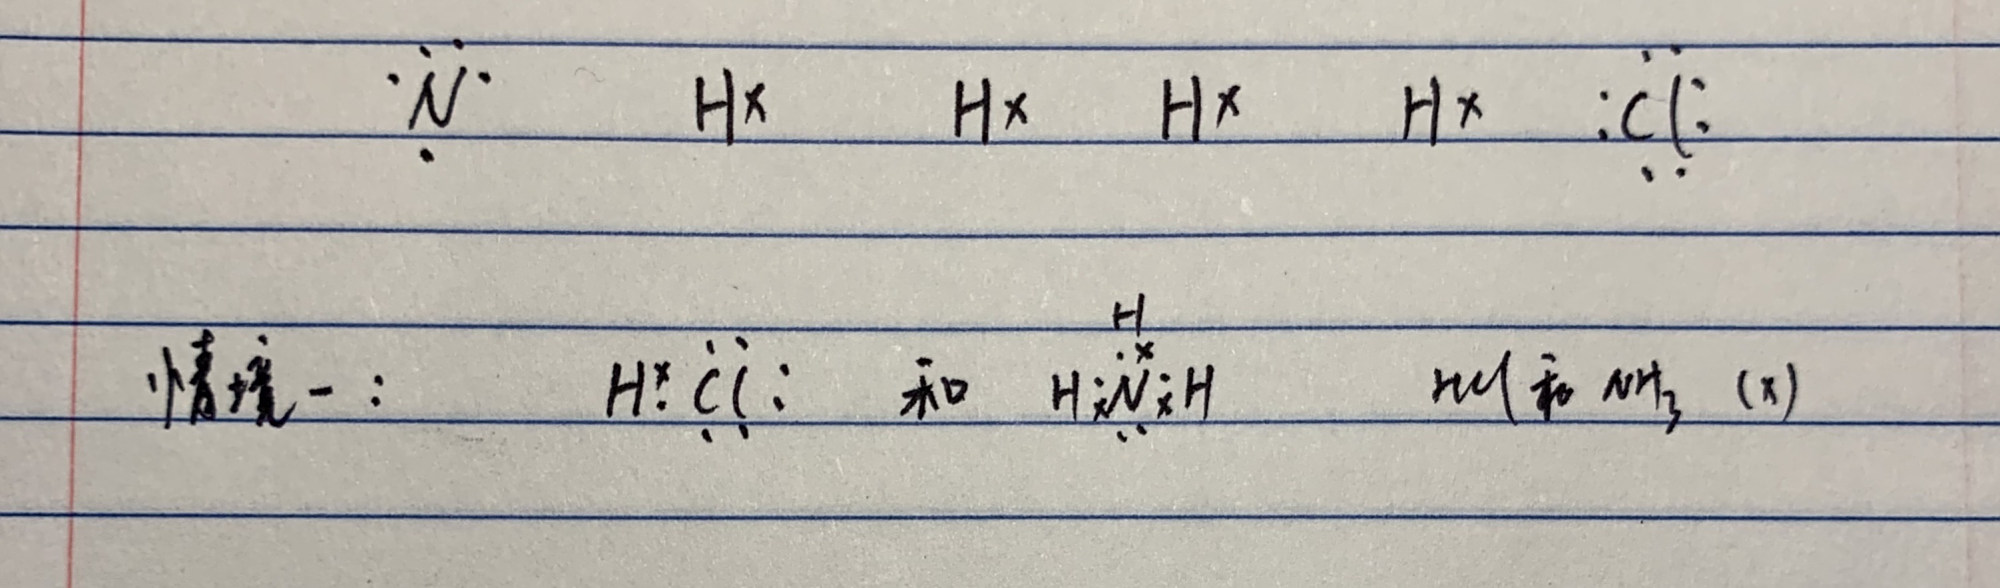 ·N̈· H× H× H× H× :C̈l:
情境一: H×·C̈l: 和 H:N:H HCl 和 NH₃ (×)
H